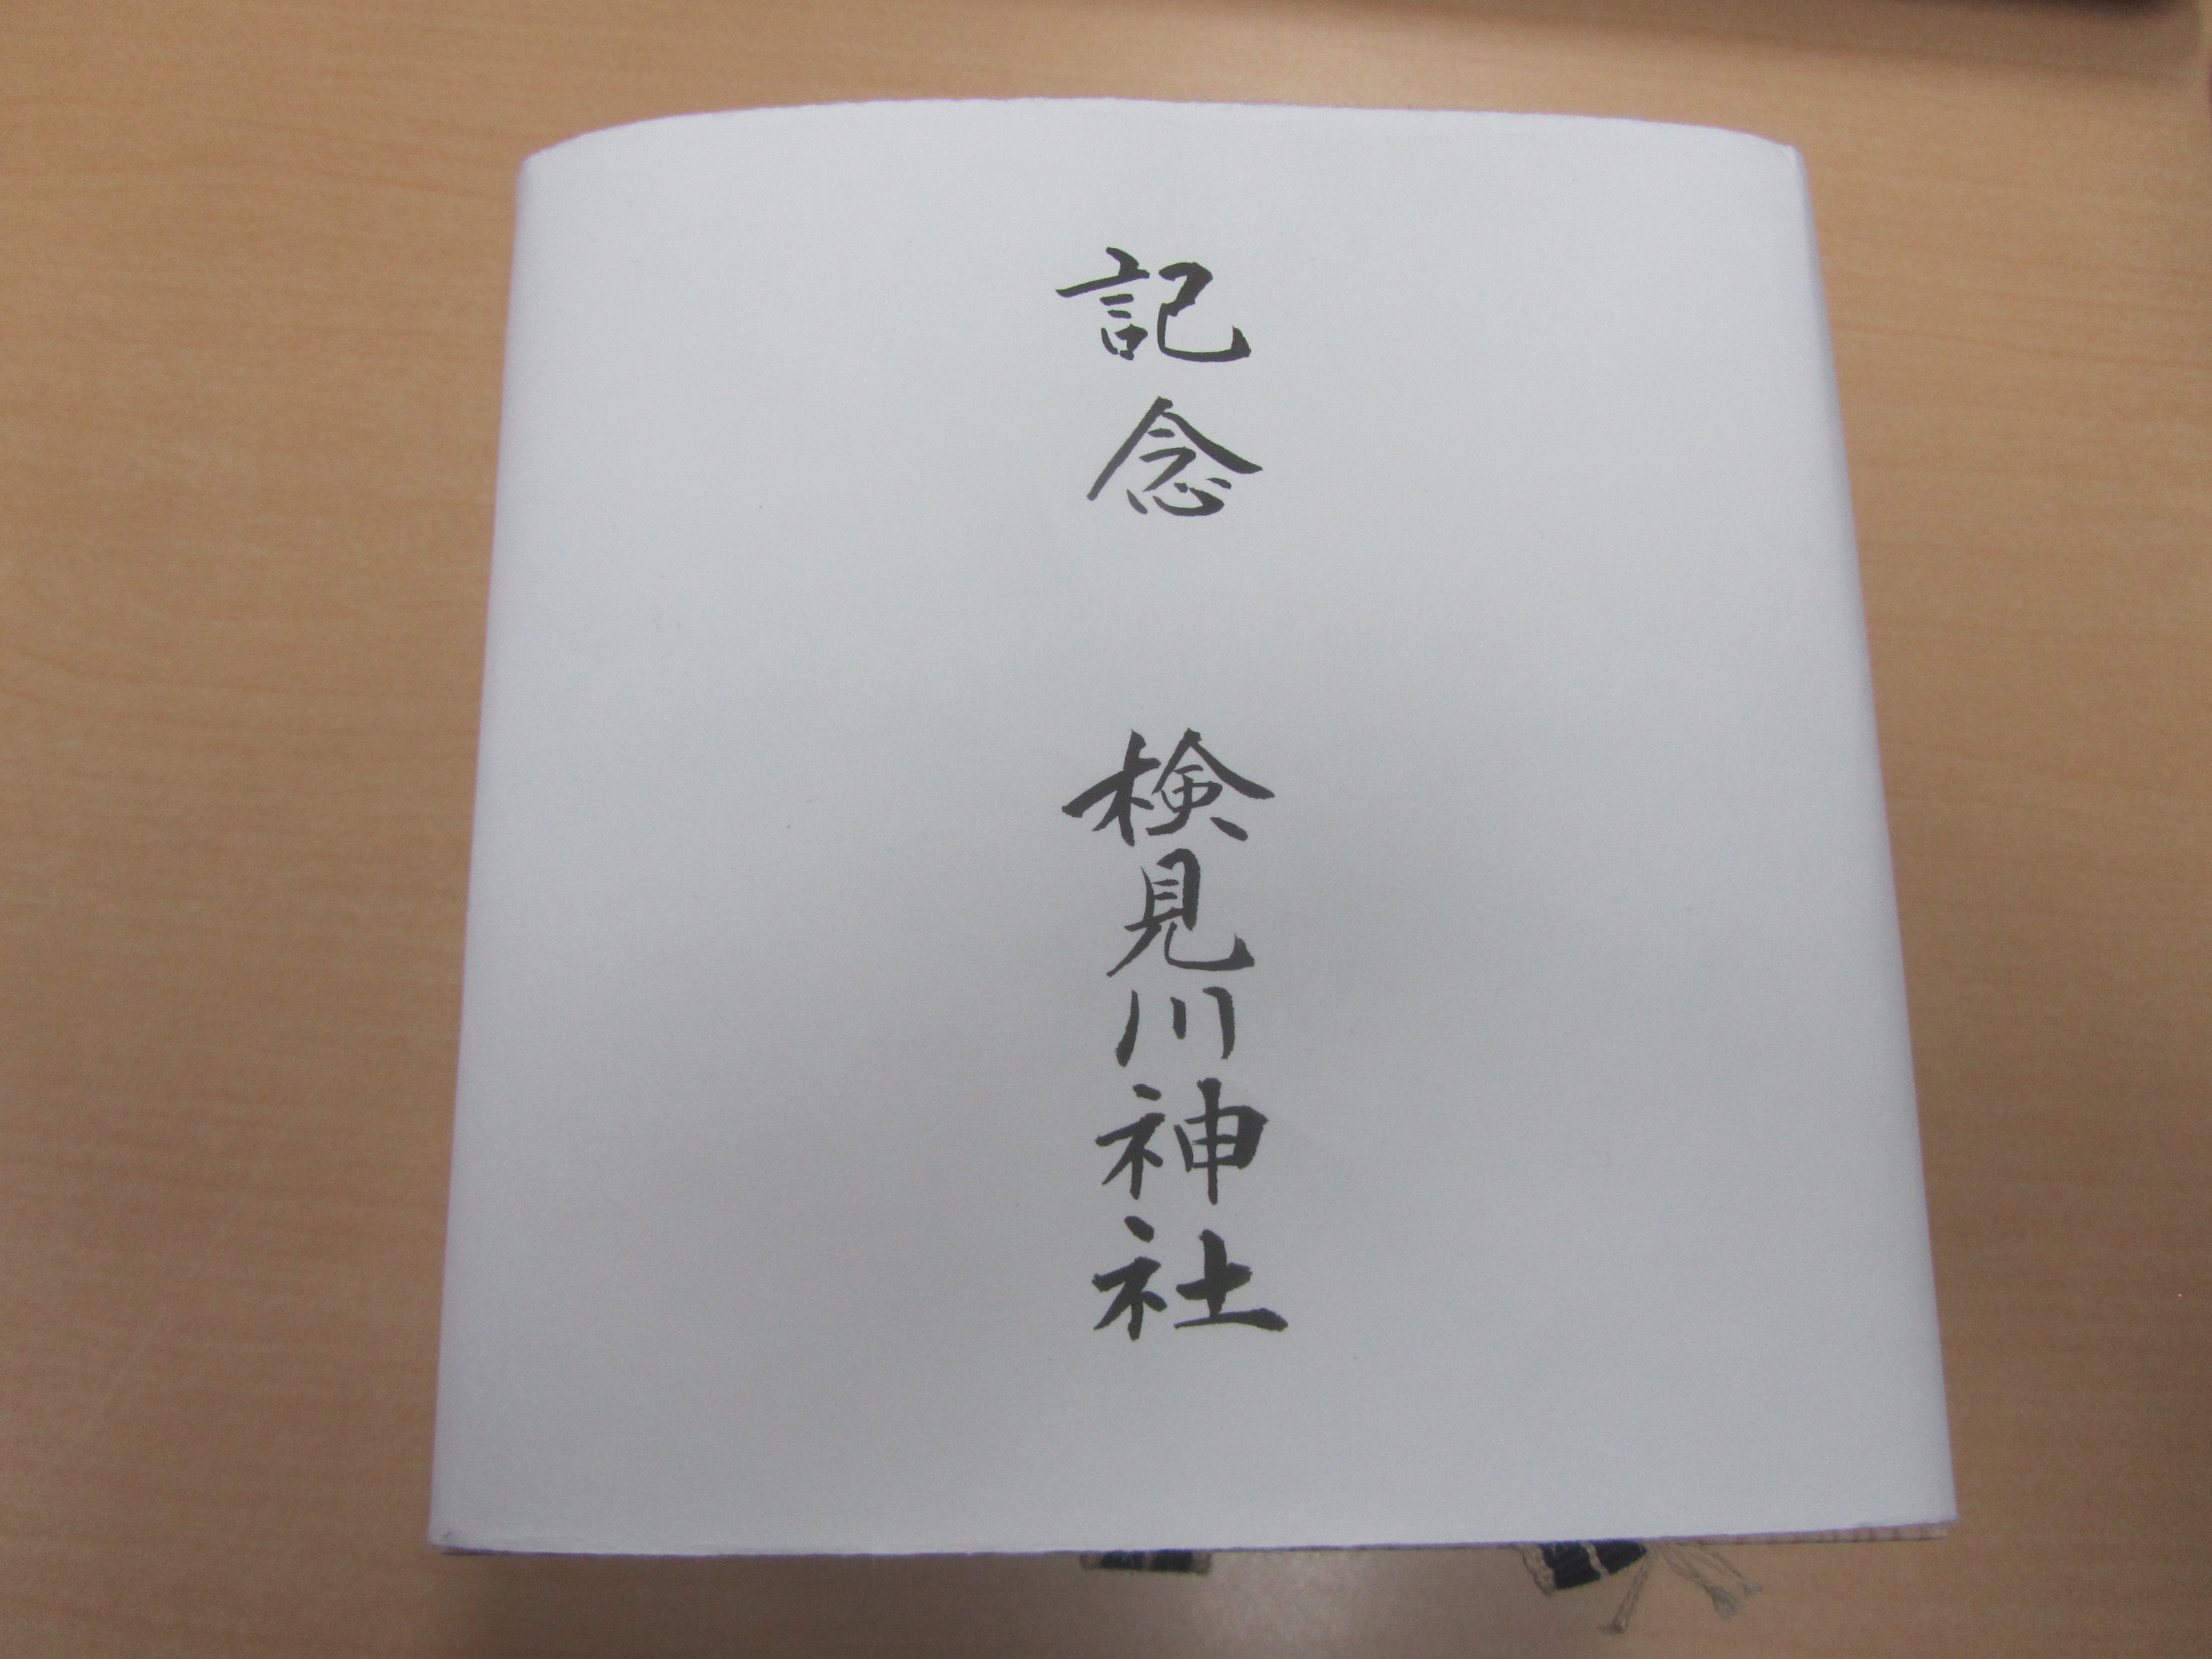 記念 検見川神社